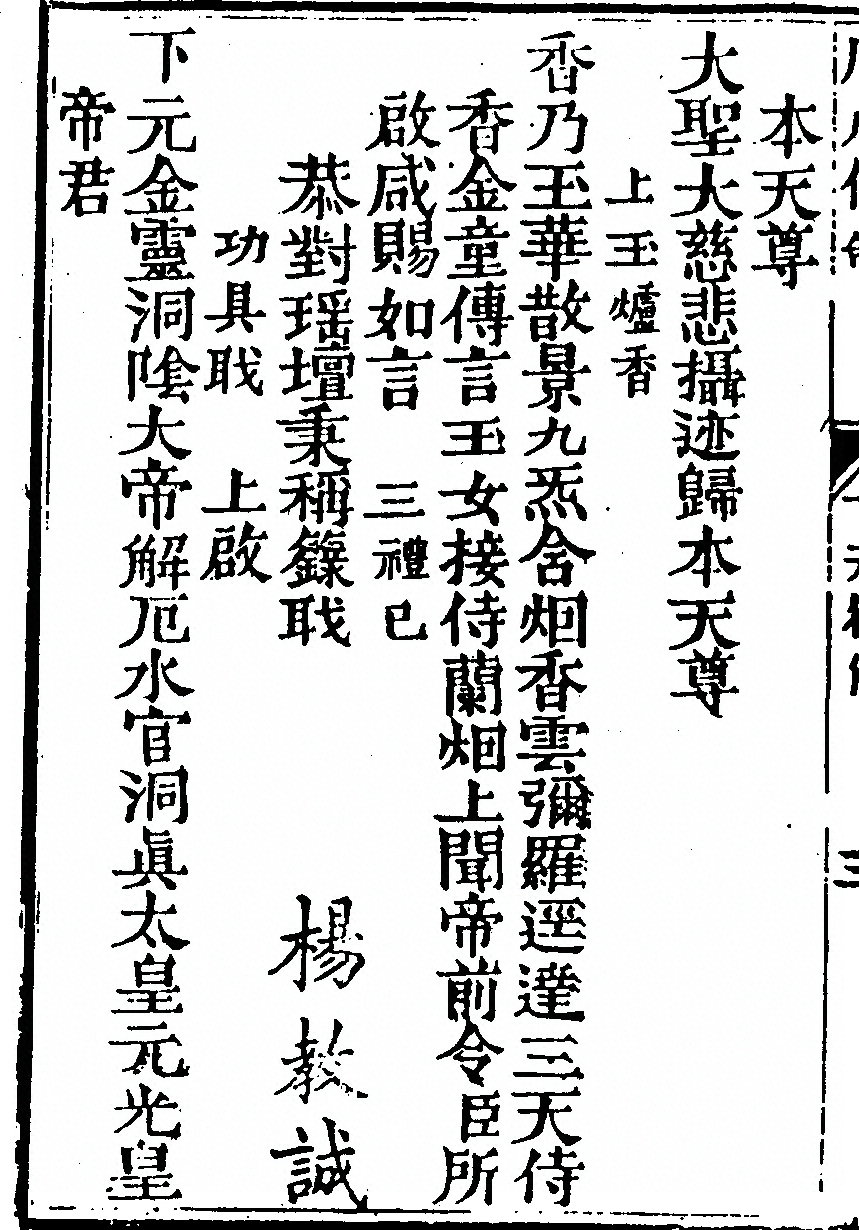 本天尊
大聖大慈悲攝迹歸本天尊
上玉爐香
香乃玉華散景九炁含烟香雲彌羅逕達三天侍
香金童傳言玉女接侍蘭烟上聞帝前令臣所
啟咸賜如言　三禮已
恭對瑶壇秉稱籙職　楊教誠
功具職　上啟
下元金靈洞陰大帝解厄水官洞眞太皇元光皇
帝君
三